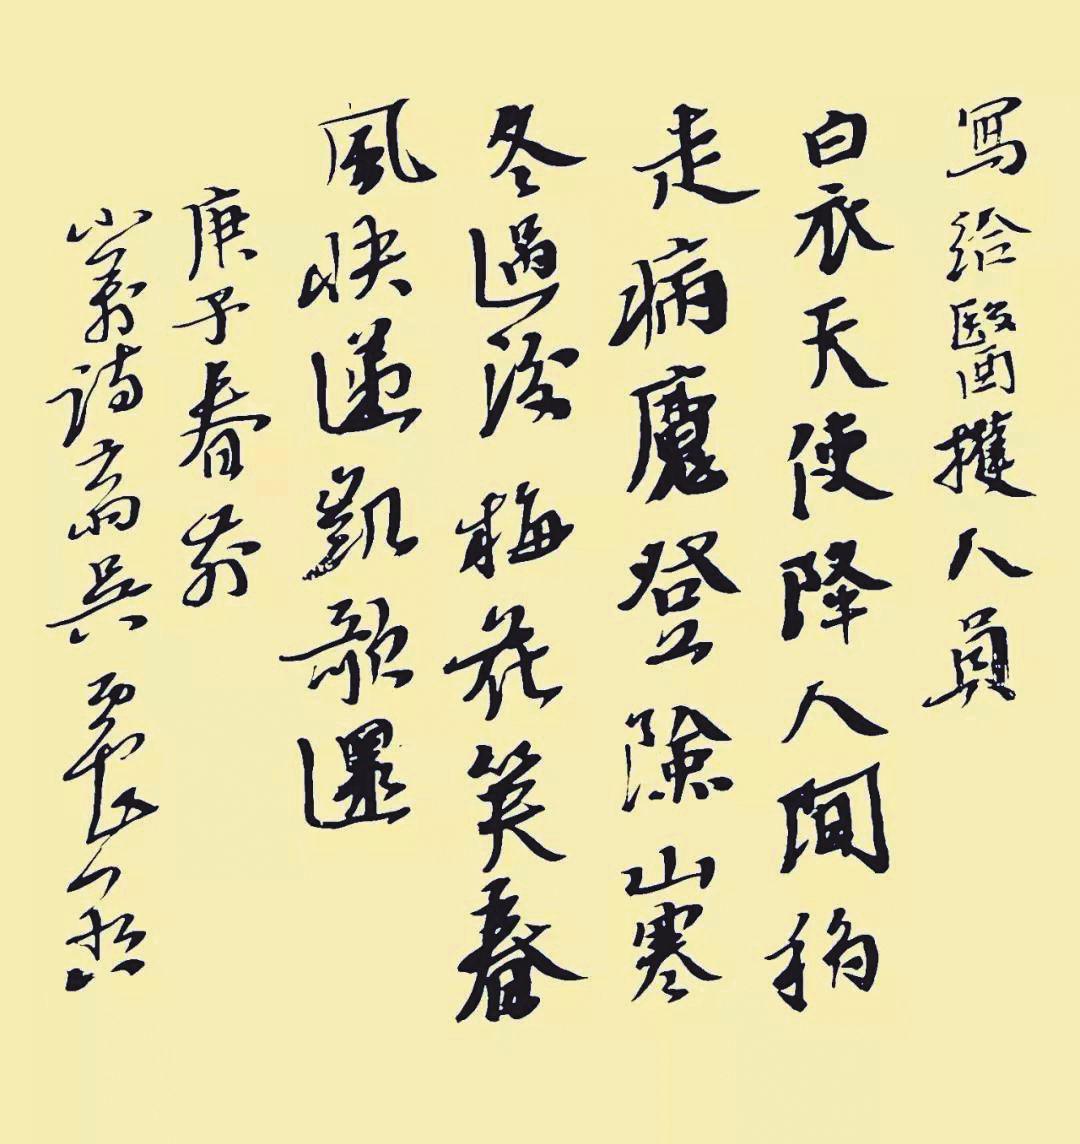 寫給醫護人員
白衣天使降人間
走病魔登險山寒
冬過後梅花笑春
風快遞凱歌還
庚子春前
小 詩 兵